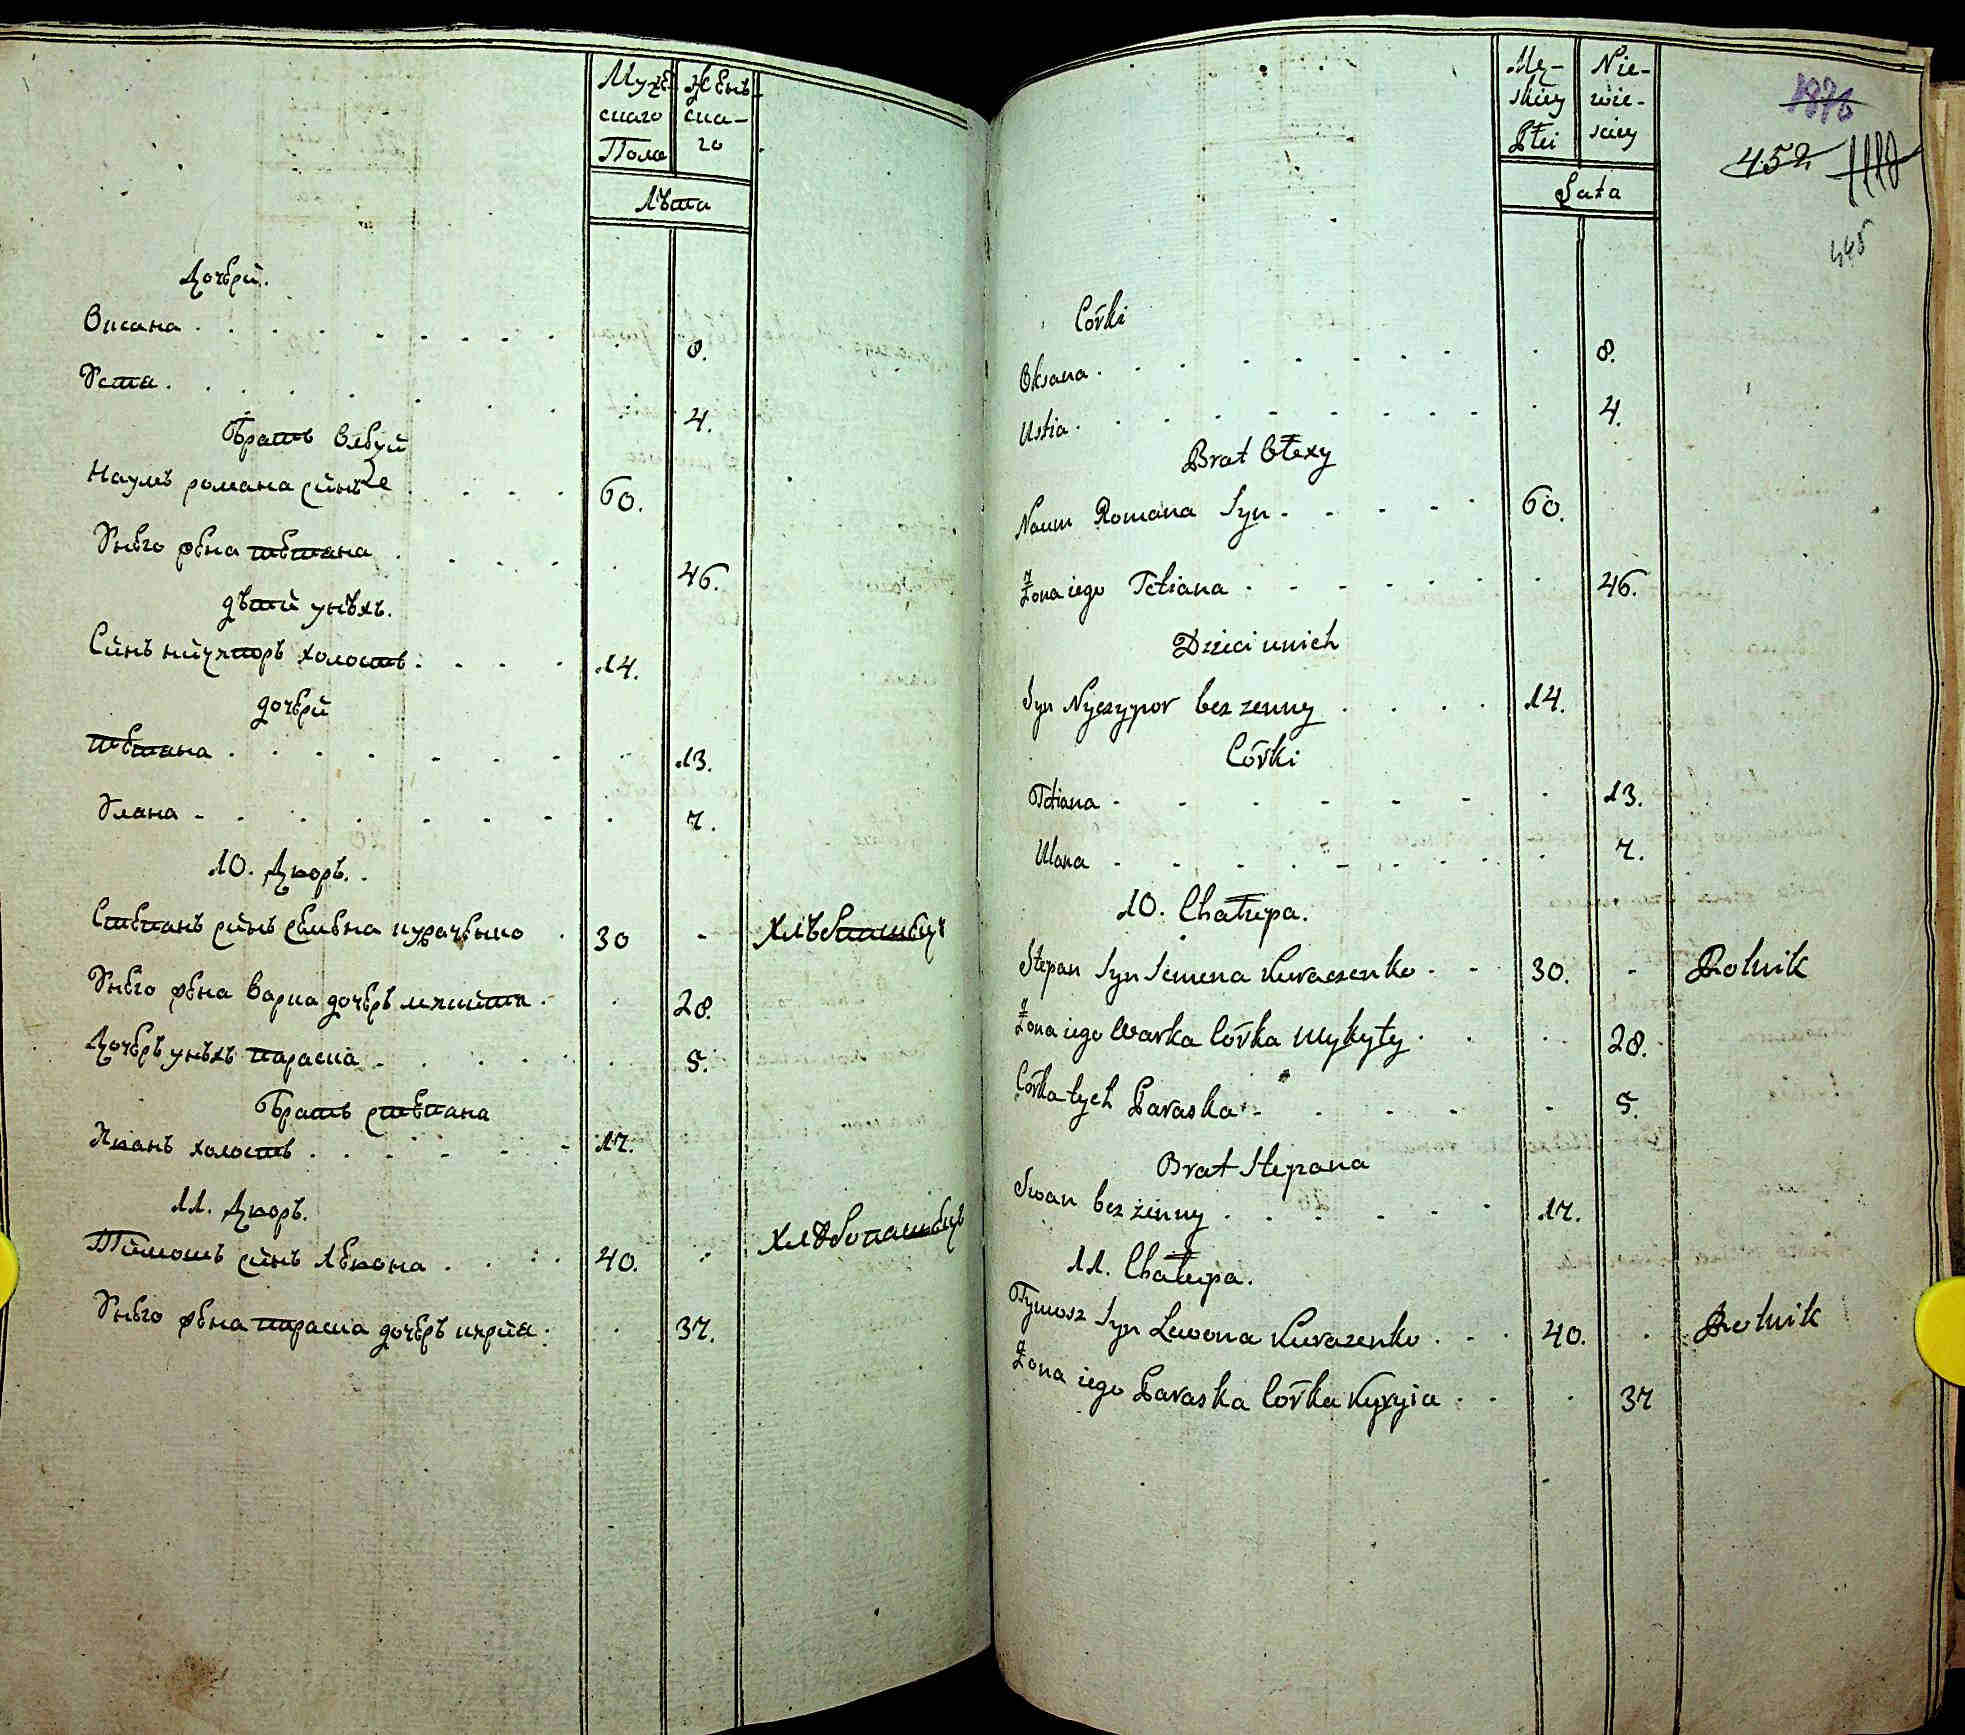 Мужескаго Пола
Женьскаго
Лѣта
Дочерй.
Оксана 8.
Уста 4.
Братъ Олексѣй
Наумъ романа сйнъ 60.
Унего жена тетяна 46.
дѣтй унѣхъ.
Сйнъ нйчипоръ холостъ 14.
дочерй
тетяна 13.
Улана 7.
10. Дворъ.
Степанъ сйнъ семена кураченко 30 - хлѣбопашецъ
Унего жена варка дочеръ мйкйта 28.
Дочеръ унѣхъ параска 5.
Братъ степана
Иванъ холостъ 17.
11. Дворъ.
Тймошъ сйнъ левона 40. хлѣбопашецъ
Унего жена параска дочеръ кирйа 37.
Męskiey Płci
Niewieściey
Lata
1876
452
445
Córki
Oksana 8.
Ustia 4.
Brat Ołexy
Naum Romana Syn 60.
Żona iego Tetiana 46.
Dzieci unich
Syn Nyczypor bez zenny 14.
Córki
Tetiana 13.
Ulana 7.
10. Chałupa.
Stepan Syn Semena Kuraczenko 30. - Rolnik
Żona iego Warka Córka Mykyty 28.
Córka tych Paraska 5.
Brat Stepana
Iwan bez żenny 17.
11. Chałupa.
Tymosz Syn Lewona Kuraczenko 40. Rolnik
Żona iego Paraska Córka Kyryia 37